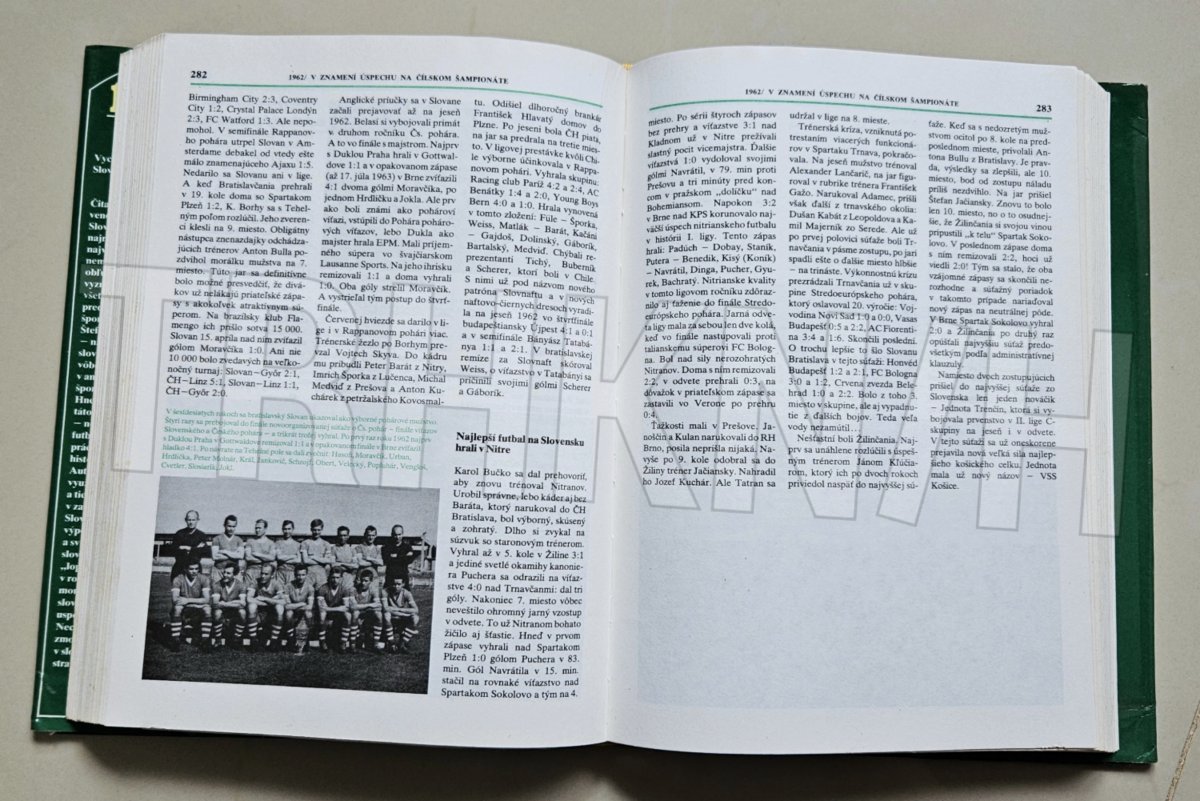 282
1962/ V ZNAMENÍ ÚSPECHU NA ČÍLSKOM ŠAMPIONÁTE
Birmingham City 2:3, Coventry
City 1:2, Crystal Palace Londýn
2:3, FC Watford 1:3. Ale nepo-
mohol. V semifinále Rappanov-
ho pohára utrpel Slovan v Am-
sterdame debakel od vtedy ešte
málo znamenajúceho Ajaxu 1:5.
Nedarilo sa Slovanu ani v lige.
A keď Bratislavčania prehrali
v 19. kole doma so Spartakom
Plzeň 1:2, K. Borhy sa s Tehel-
ným poľom rozlúčil. Jeho zveren-
ci klesli na 9. miesto. Obligátny
nástupca znenazdajky odchádza-
júcich trénerov Anton Bulla po-
zdvihol morálku mužstva na 7.
miesto. Túto jar sa definitívne
bolo možné presvedčiť, že divá-
kov už nelákajú priateľské zápa-
sy s akokoľvek atraktívnym sú-
perom. Na brazílsky klub Fla-
mengo ich prišlo sotva 15 000.
Slovan 15. apríla nad ním zvíťazil
gólom Moravčíka 1:0. Ani nie
10 000 bolo zvedavých na veľko-
nočný turnaj: Slovan–Győr 2:1,
ČH–Linz 5:1, Slovan–Linz 1:1,
ČH–Győr 2:0.
Anglické príučky sa v Slovane
začali prejavovať až na jeseň
1962. Belasí si vybojovali primát
v druhom ročníku Čs. pohára.
A to vo finále s majstrom. Najprv
s Duklou Praha hrali v Gottwal-
dove 1:1 a v opakovanom zápase
(až 17. júla 1963) v Brne zvíťazili
4:1 dvoma gólmi Moravčíka, po
jednom Hrdličku a Jokla. Ale prv
ako boli známi ako pohároví
víťazi, vstúpili do Pohára pohá­ro-
vých víťazov, lebo Dukla ako
majster hrala EPM. Mali príjem-
ného súpera vo švajčiarskom
Lausanne Sports. Na jeho ihrisku
remizovali 1:1 a doma vyhrali
1:0. Oba góly strelil Moravčík.
A vystrieľal tým postup do štvrť-
finále.
Červenej hviezde sa darilo v li-
ge i v Rappanovom pohári viac.
Trénerské žezlo po Borhym pre-
vzal Vojtech Skyva. Do kádru
mu pribudli Peter Barát z Nitry,
Imrich Šporka z Lučenca, Michal
Medviď z Prešova a Anton Ku-
chárek z petržalského Kovosmal-
tu. Odišiel dlhoročný brankár
František Hlavatý domov do
Plzne. Po jeseni bola ČH piata,
na jar sa predrala na tretie mies-
to. V ligovej prestávke kvôli Chi-
le výborne účinkovala v Rappa-
novom pohári. Vyhrala skupinu:
Racing club Paríž 4:2 a 2:4, AC
Benátky 1:4 a 2:0, Young Boys
Bern 4:0 a 1:0. Hrala vynovená
v tomto zložení: Füle – Šporka,
Weiss, Matlák – Barát, Kačáni
– Gajdoš, Dolinský, Gáborík,
Bartalský, Medviď. Chýbali re-
prezentanti Tichý, Buberník
a Scherer, ktorí boli v Chile.
S nimi už pod názvom nového
patróna Slovnaftu a v nových
naftovo-čiernych dresoch vyradi-
la na jeseň 1962 vo štvrťfinále
budapeštiansky Újpest 4:1 a 0:1
a v semifinále Bányász Tatabá-
nya 1:1 a 2:1. V bratislavskej
remíze za Slovnaft skóroval
Weiss, o víťazstvo v Tatabányi sa
pričinili svojimi gólmi Scherer
a Gáborík.
V šesťdesiatych rokoch sa bratislavský Slovan ukazoval ako výborné pohárové mužstvo.
Štyri razy sa prebojoval do finále novoorganizovanej súťaže o Čs. pohár – finále víťazov
Slovenského a Českého pohára – a trikrát trofej vyhral. Po prvý raz roku 1962 najprv
s Duklou Praha v Gottwaldove remizoval 1:1 a v opakovanom finále v Brne zvíťazil
hladko 4:1. Po návrate na Tehelné pole sa dali zvečniť: Hason, Moravčík, Urban,
Hrdlička, Peter Molnár, Kráľ, Jankovič, Schrojf, Obert, Velecký, Popluhár, Vengloš,
Cvetler, Slosiarik, Jokl.
Najlepší futbal na Slovensku
hrali v Nitre
Karol Bučko sa dal prehovoriť,
aby znovu trénoval Nitranov.
Urobil správne, lebo káder aj bez
Baráta, ktorý narukoval do ČH
Bratislava, bol výborný, skúsený
a zohratý. Dlho si zvykal na
súzvuk so staronovým trénerom.
Vyhral až v 5. kole v Žiline 3:1
a jediné svetlé okamihy kanonie-
ra Puchera sa odrazili na víťaz-
stve 4:0 nad Trnavčanmi: dal tri
góly. Nakoniec 7. miesto vôbec
neveštilo ohromný jarný vzostup
v odvete. To už Nitranom bohato
žičilo aj šťastie. Hneď v prvom
zápase vyhrali nad Spartakom
Plzeň 1:0 gólom Puchera v 83.
min. Gól Navrátila v 15. min.
stačil na rovnaké víťazstvo nad
Spartakom Sokolovo a tým na 4.
1962/ V ZNAMENÍ ÚSPECHU NA ČÍLSKOM ŠAMPIONÁTE
283
miesto. Po sérii štyroch zápasov
bez prehry a víťazstve 3:1 nad
Kladnom už v Nitre prežívali
slastný pocit vicemajstra. Ďalšie
víťazstvá 1:0 vydoloval svojimi
gólmi Navrátil, v 79. min proti
Prešovu a tri minúty pred kon-
com v pražskom „dolíčku“ nad
Bohemiansom. Napokon 3:2
v Brne nad KPS korunovalo naj-
väčší úspech nitrianskeho futbalu
v histórii I. ligy. Tento zápas
hrali: Padúch – Dobay, Staník,
Putera – Benedik, Kisý (Koník)
– Navrátil, Dinga, Pucher, Gyu-
rek, Bachratý. Nitrianske kvality
v tomto ligovom ročníku zdôraz-
nilo aj ťaženie do finále Stredo-
európskeho pohára. Jarná odve-
ta ligy mala za sebou len dve kolá,
keď vo finále nastupovali proti
talianskemu súperovi FC Bolog-
na. Bol nad sily nerozohratých
Nitranov. Doma s ním remizovali
2:2, v odvete prehrali 0:3, na
dôvažok v priateľskom zápase sa
zastavili vo Verone po prehru
0:4.
Ťažkosti mali v Prešove. Ja-
noščin a Kulan narukovali do RH
Brno, posila neprišla nijaká. Na-
vyše po 9. kole odobral sa do
Žiliny tréner Jačiansky. Nahradil
ho Jozef Kuchár. Ale Tatran sa
udržal v lige na 8. mieste.
Trénerská kríza, vzniknutá po-
trestaním viacerých funkcioná-
rov v Spartaku Trnava, pokračo-
vala. Na jeseň mužstvo trénoval
Alexander Lančarič, na jar figu-
roval v rubrike tréneri František
Gažo. Narukoval Adamec, prišli
však ďalší z trnavského okolia:
Dušan Kabát z Leopoldova a Ka-
mil Majerník zo Serede. Ale už
po prvej polovici súťaže boli Tr-
navčania v pásme zostupu, po jari
spadli ešte o dieste miesto hlbšie
– na trináste. Výkonnostnú krízu
prezrádzali Trnavčania už v sku-
pine Stredoeurópskeho pohára,
ktorý oslavoval 20. výročie: Voj-
vodina Novi Sad 1:0 a 0:0, Vasas
Budapešť 0:5 a 2:2, AC Fiorenti-
na 3:4 a 1:6. Skončili poslední.
O trochu lepšie to šlo Slovanu
Bratislava v tejto súťaži: Honvéd
Budapešť 1:2 a 2:1, FC Bologna
3:0 a 1:2, Crvena zvezda Bele-
hrad 1:0 a 2:2. Bolo z toho 3.
miesto v skupine, ale aj vypadnu-
tie z ďalších bojov. Teda veľa
vody nezamútil…
Nešťastní boli Žilinčania. Naj-
prv sa unáhlene rozlúčili s úspeš-
ným trénerom Jánom Klúčia-
rom, ktorý ich po dvoch rokoch
priviedol naspäť do najvyššej sú-
ťaže. Keď sa s nedozretým muž-
stvom ocitol po 8. kole na pred-
poslednom mieste, privolali An-
tona Bullu z Bratislavy. Je prav-
da, výsledky sa zlepšili, ale 10.
miesto, bod od zostupu náladu
príliš nezdvihlo. Na jar prišiel
Štefan Jačiansky. Znovu to bolo
len 10. miesto, no o to osudnej-
šie, že Žilinčania si svojou vinou
pripustili „k telu“ Spartak Soko-
lovo. V poslednom zápase doma
s ním remizovali 2:2, hoci už
viedli 2:0! Tým sa stalo, že oba
vzájomné zápasy sa skončili ne-
rozhodne a súťažný poriadok
v takomto prípade nariaďoval
nový zápas na neutrálnej pôde.
V Brne Spartak Sokolovo vyhral
2:0 a Žilinčania po druhý raz
opúšťali najvyššiu súťaž predo-
všetkým podľa administratívnej
klauzuly.
Namiesto dvoch zostupujúcich
prišiel do najvyššej súťaže zo
Slovenska len jeden nováčik
– Jednota Trenčín, ktorá si vy-
bojovala prvenstvo v II. lige C-
skupiny na jeseň i v odvete.
V tejto súťaži sa už oneskorene
prejavila nová veľká sila najlep-
šieho košického celku. Jednota
mala už nový názov – VSS
Košice.